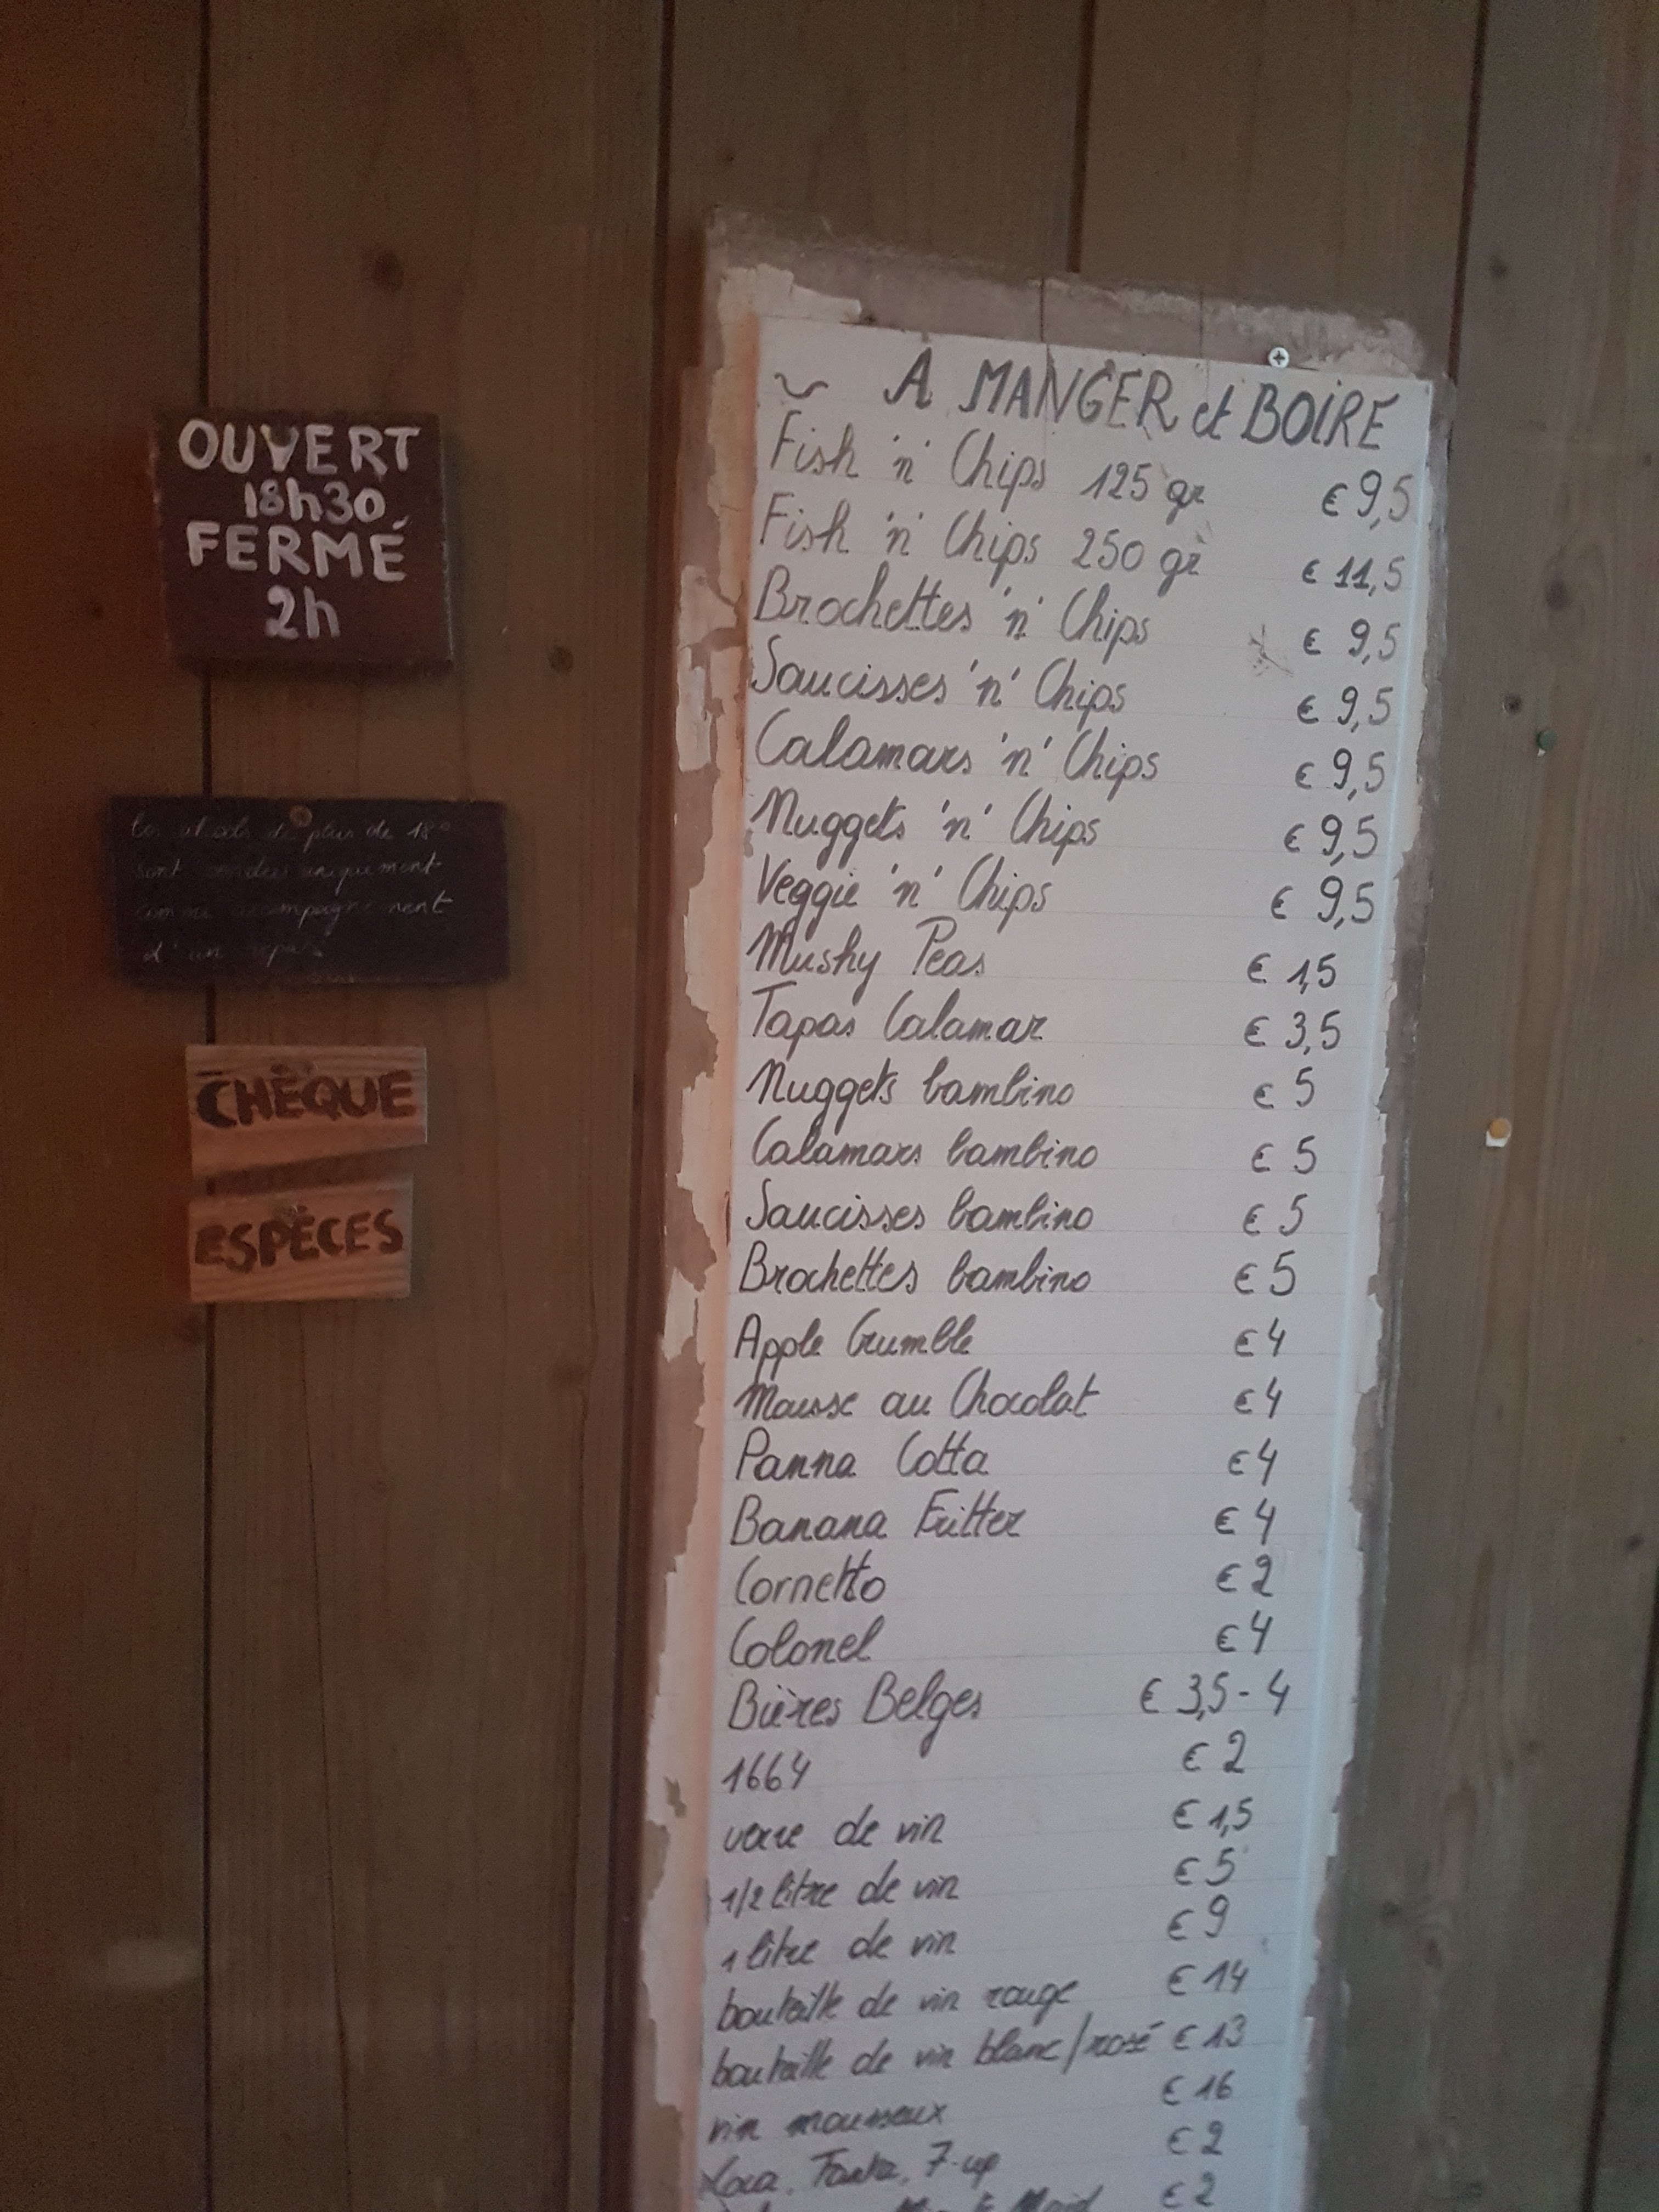 OUVERT
18h30
FERMÉ
2h
les alcools de plus de 18°
sont vendus uniquement
comme accompagnement
d'un repas
CHÈQUE
ESPÈCES
A MANGER et BOIRE
Fish 'n' Chips 125 gr € 9,5
Fish 'n' Chips 250 gr € 11,5
Brochettes 'n' Chips € 9,5
Saucisses 'n' Chips € 9,5
Calamars 'n' Chips € 9,5
Nuggets 'n' Chips € 9,5
Veggie 'n' Chips € 9,5
Mushy Peas € 1,5
Tapas Calamar € 3,5
Nuggets bambino € 5
Calamars bambino € 5
Saucisses bambino € 5
Brochettes bambino € 5
Apple Crumble € 4
Mousse au Chocolat € 4
Panna Cotta € 4
Banana Fritter € 4
Cornetto € 2
Colonel € 4
Bières Belges € 3,5 - 4
1664 € 2
verre de vin € 1,5
1/2 litre de vin € 5
1 litre de vin € 9
bouteille de vin rouge € 14
bouteille de vin blanc/rosé € 13
vin mousseux € 16
Coca, Fanta, 7-up € 2
€ 2